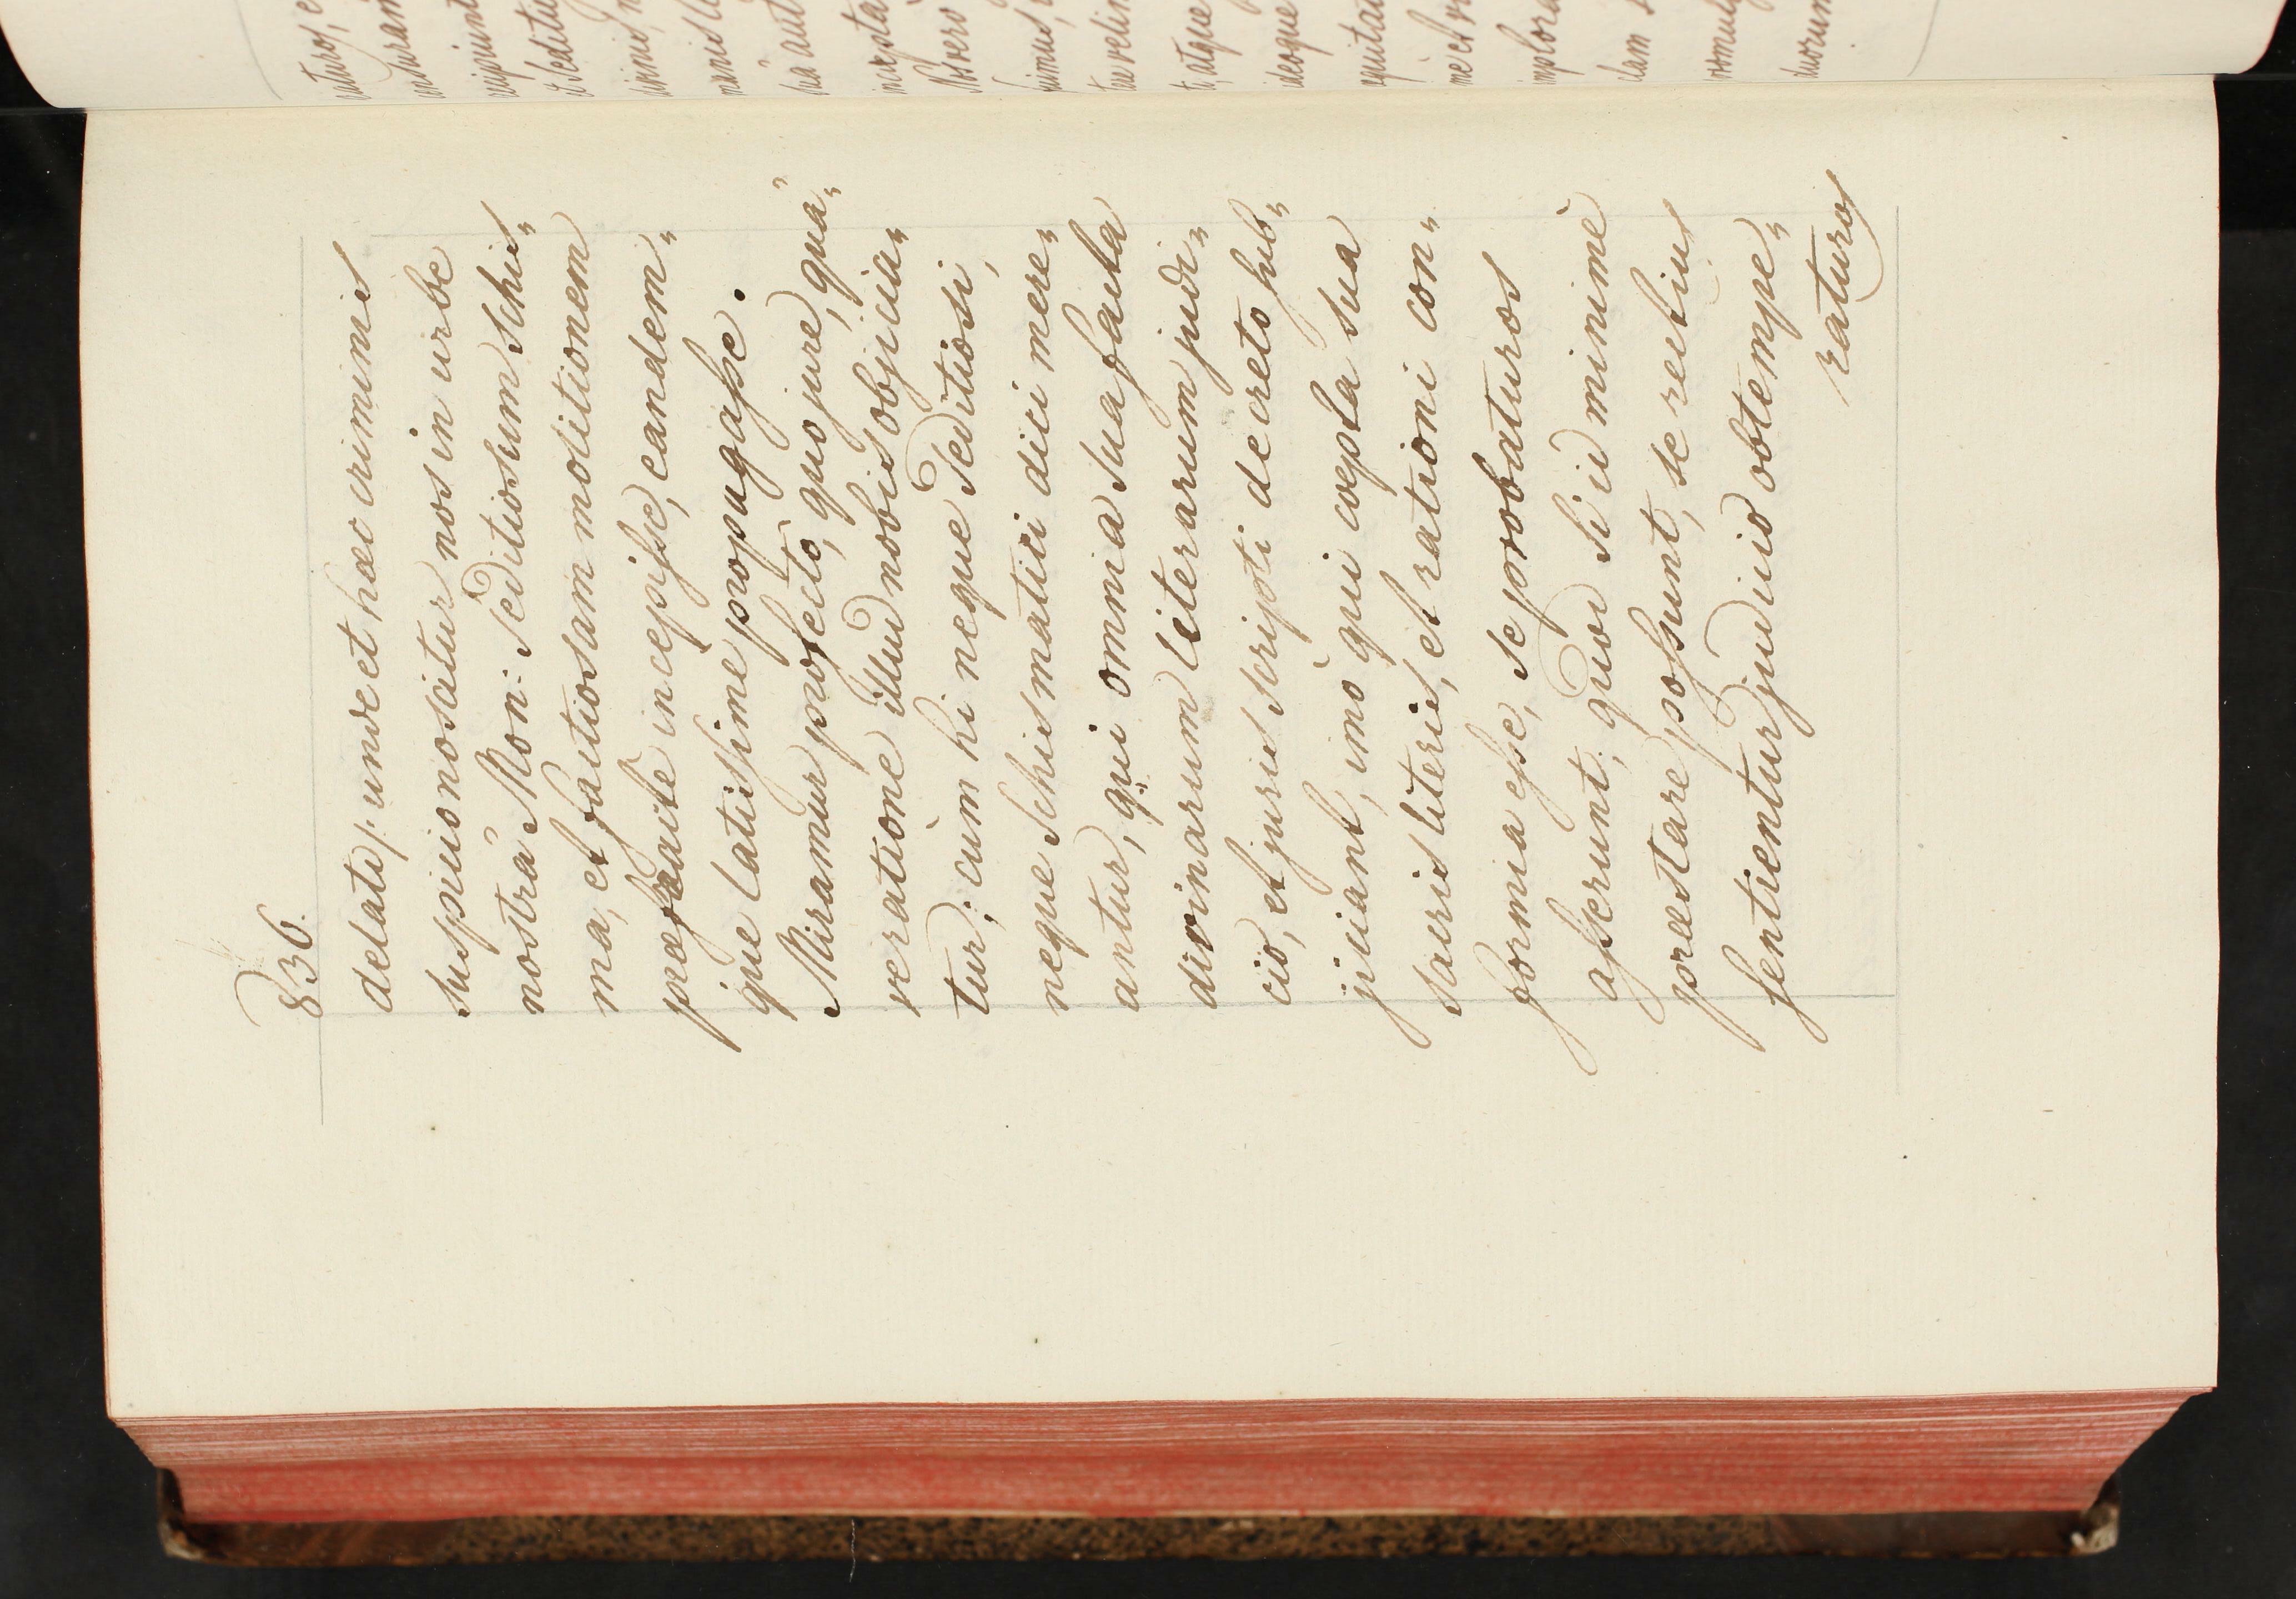 836.
delati; unde et hæc criminis
suspicio noscitur nos in urbe
nostrâ Mon: Seditiosum Schis„
ma, et factiosam molitionem
præfracte incepisse, eandem„
que latissime propugasse.
Miramur profecto, quo jure, quâ„
ve ratione illud nobis objicia„
tur; cùm hi neque Seditiosi,
neque Schismatici dici mere„
antur, qui omnia sua facta
divinarum literarum judi„
cio, et juris scripti decreto sub„
jiciant, imò qui coepta sua
sacris literis, et rationi con„
formia esse, se probaturos
asserunt; quod si id minimè
præstare possunt, se rectius
sentientur judicio obtempe„
raturos